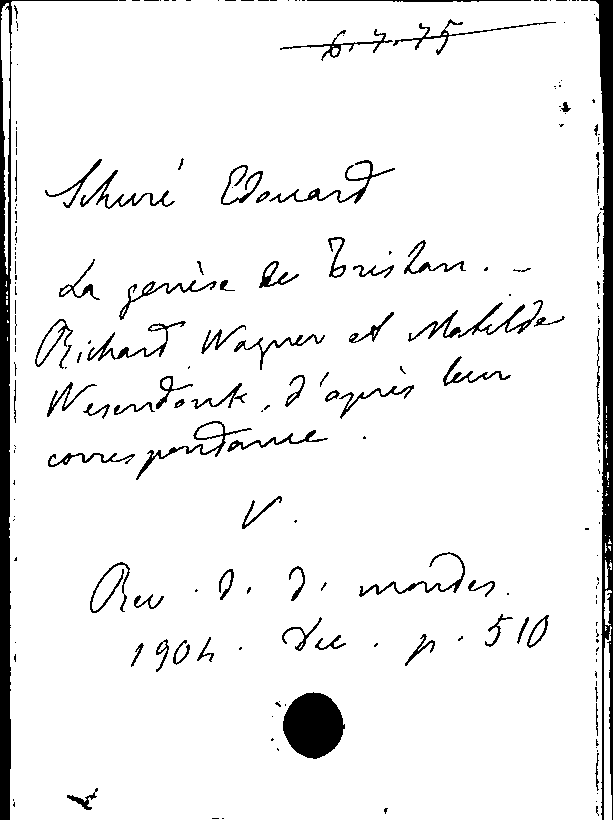 6.7.75
Schuré Edouard
La genèse de Tristan. –
Richard Wagner et Mathilde
Wesendonk, d'après leur
correspondance.
V.
Rev. d. d. mondes.
1904. Dec. p. 510